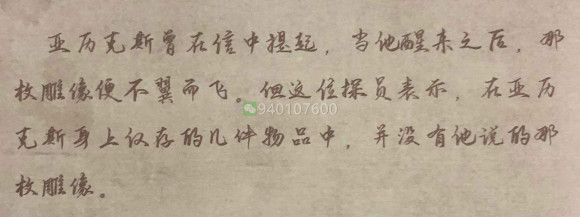 亚历克斯曾在信中提起，当他醒来之后，那
枚雕像便不翼而飞。但这位探员表示，在亚历
940107600
克斯身上仅存的几件物品中，并没有他说的那
枚雕像。